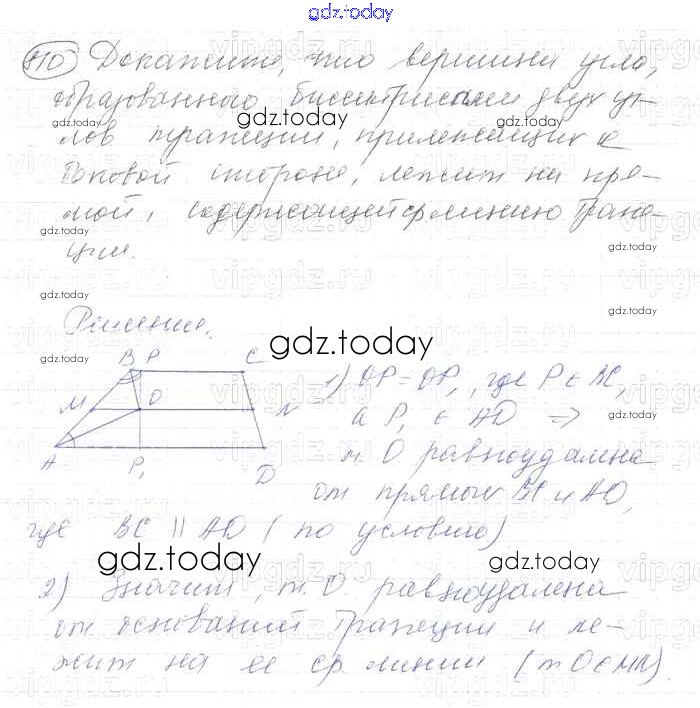 gdz.today
110 Докажите, что вершина угла,
образованного биссектрисами двух уг-
лов трапеции, прилежащих к
боковой стороне, лежит на пря-
мой, содержащей ср. линию трапе-
ции.
gdz.today
gdz.today
gdz.today
gdz.today
gdz.today
gdz.today
gdz.today
Решение.
gdz.today
gdz.today
B P C
M O N
A P₁ D
1) OP = OP₁, где P ∈ BC,
а P₁ ∈ AD =>
т. O равноудалена
от прямых BC и AD,
где BC || AD (по условию)
gdz.today
gdz.today
2) Значит, т. O равноудалена
от оснований трапеции и ле-
жит на ее ср. линии (т O ∈ MN).